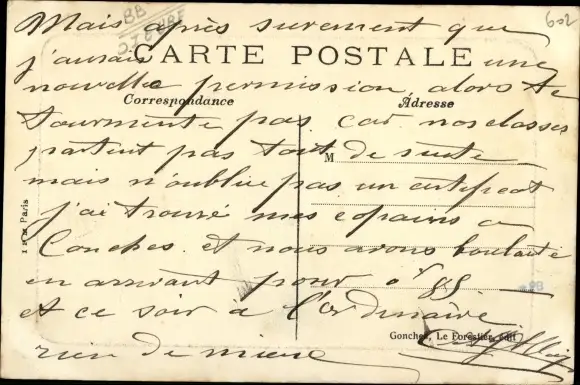 602
Mais après surement que
CARTE POSTALE
j'aurais une
nouvelle permission alors te
Correspondance
Adresse
tourmente pas car nos classes
M
partent pas tout de suite
mais n'oublie pas un certificat
j'ai trouvé mes copains a
Conches et nous avons boulotté
en arrivant pour
et ce soir à l'ordinaire
rien de mieux
Conches, Le Forestier, édit